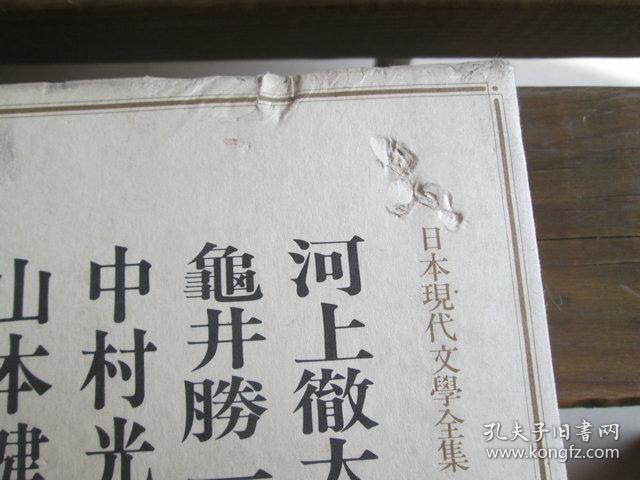 日本現代文學全集
河上徹太
龜井勝一
中村光
山本健
孔夫子旧书网
www.kongfz.com